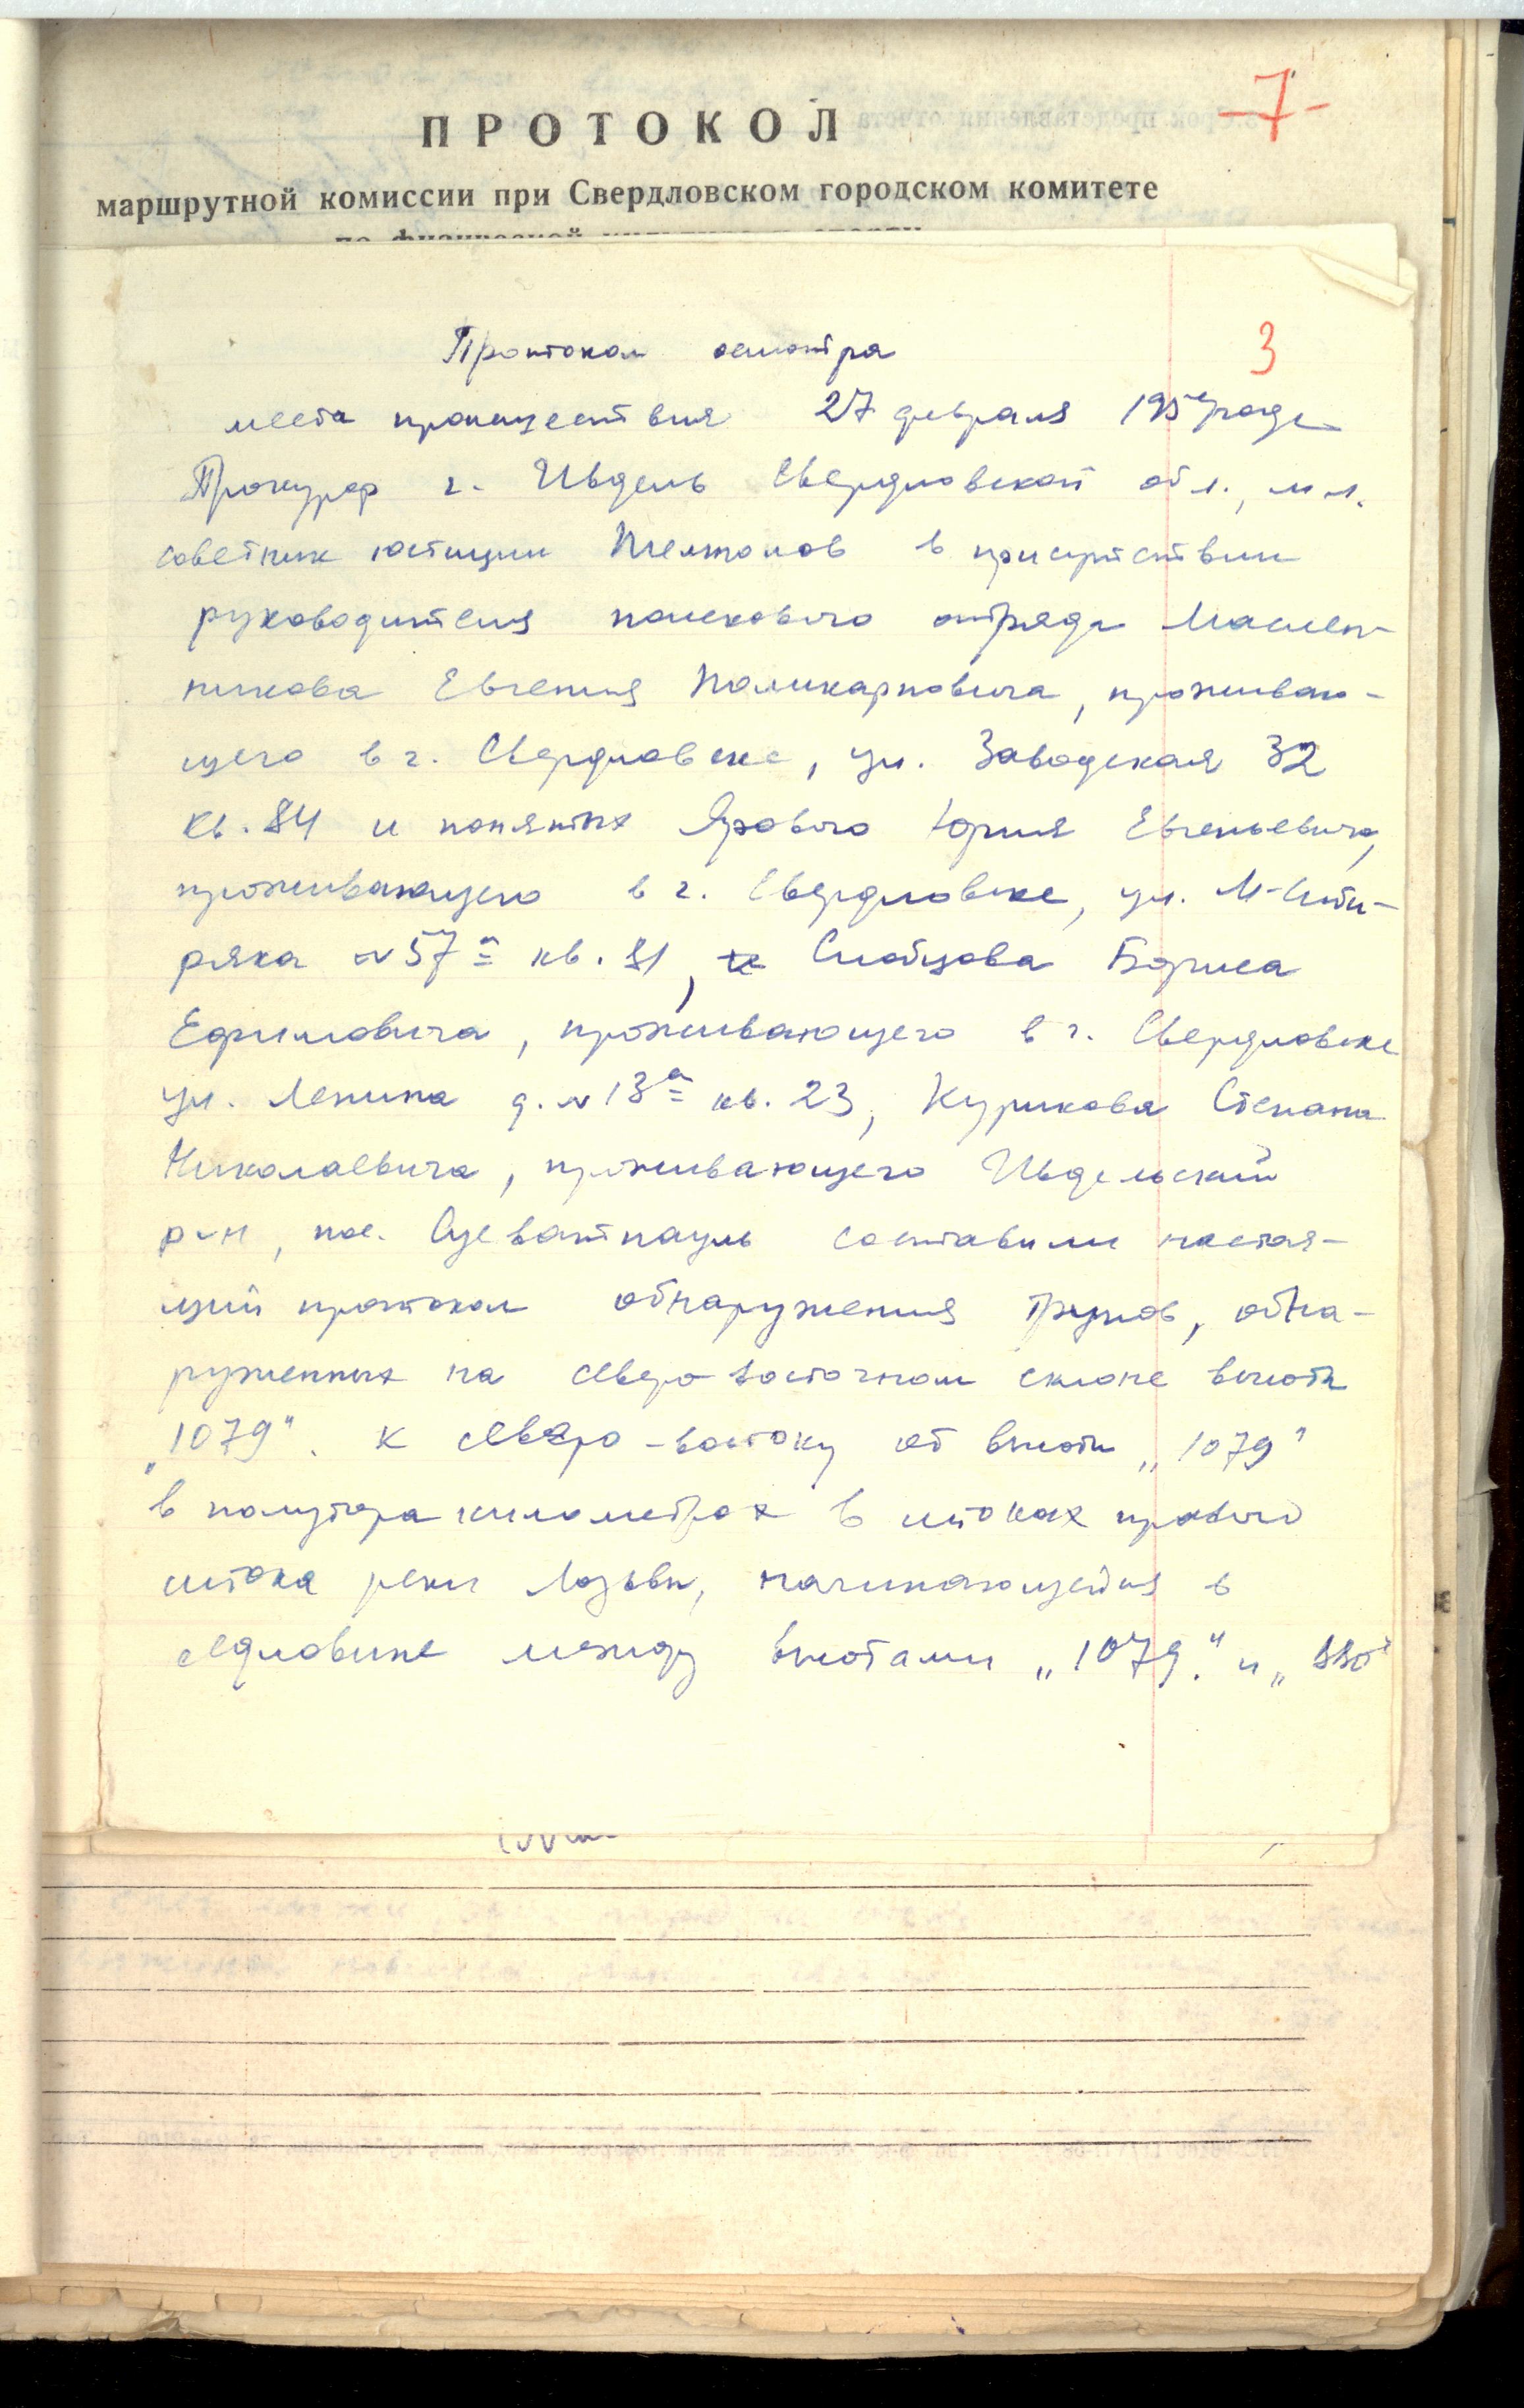 -7-
ПРОТОКОЛ
маршрутной комиссии при Свердловском городском комитете
по физической культуре и спорту
3
Протокол осмотра
места происшествия 27 февраля 1959 года
Прокурор г. Ивдель Свердловской обл., мл.
советник юстиции Темпалов в присутствии
руководителя поискового отряда Маслен-
никова Евгения Поликарповича, проживаю-
щего в г. Свердловске, ул. Заводская 32
кв. 84 и понятых Ярового Юрия Евгеньевича,
проживающего в г. Свердловске, ул. М-Сиби-
ряка № 57а кв. 81, и Слобцова Бориса
Ефимовича, проживающего в г. Свердловске
ул. Ленина д. № 13а кв. 23, Курикова Степана
Николаевича, проживающего Ивдельский
р-н, пос. Суеватпауль составили настоя-
щий протокол обнаружения трупов, обна-
руженных на северо-восточном склоне высоты
„1079". К северо-востоку от высоты „1079"
в полутора километрах в истоках правого
истока реки Лозьвы, начинающейся в
седловине между высотами „1079." и „880"